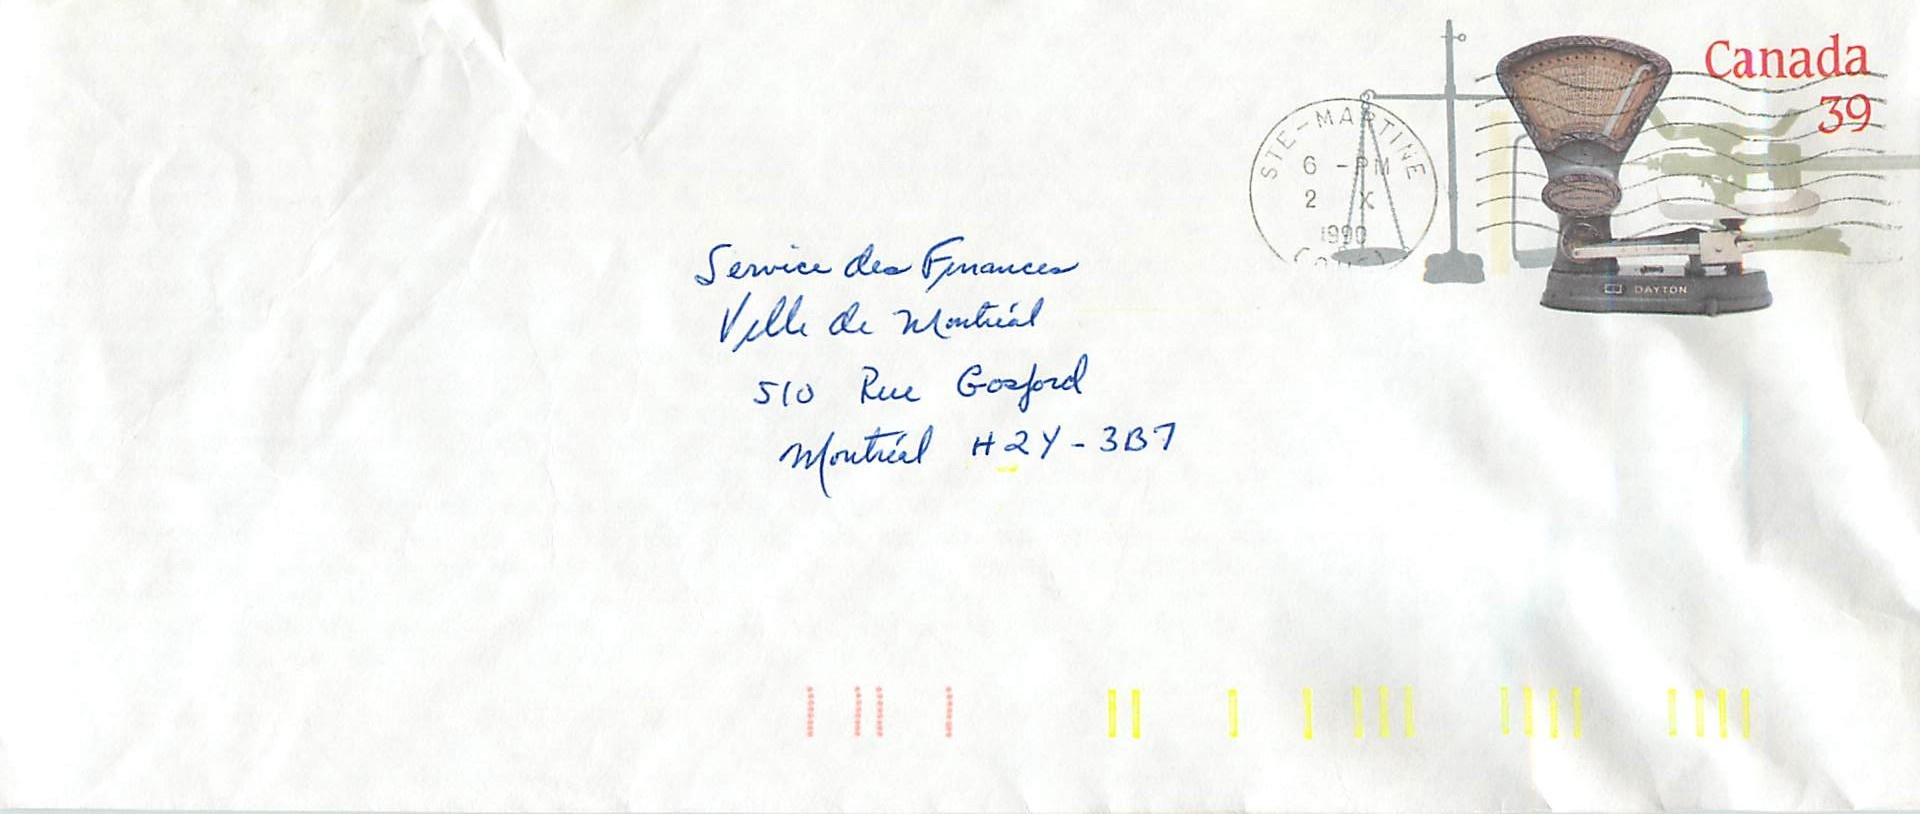 Canada
39
STE-MARTINE
6 -PM
2 X
1990
DAYTON
Service des Finances
Ville de Montréal
510 Rue Gosford
Montréal H2Y-3B7